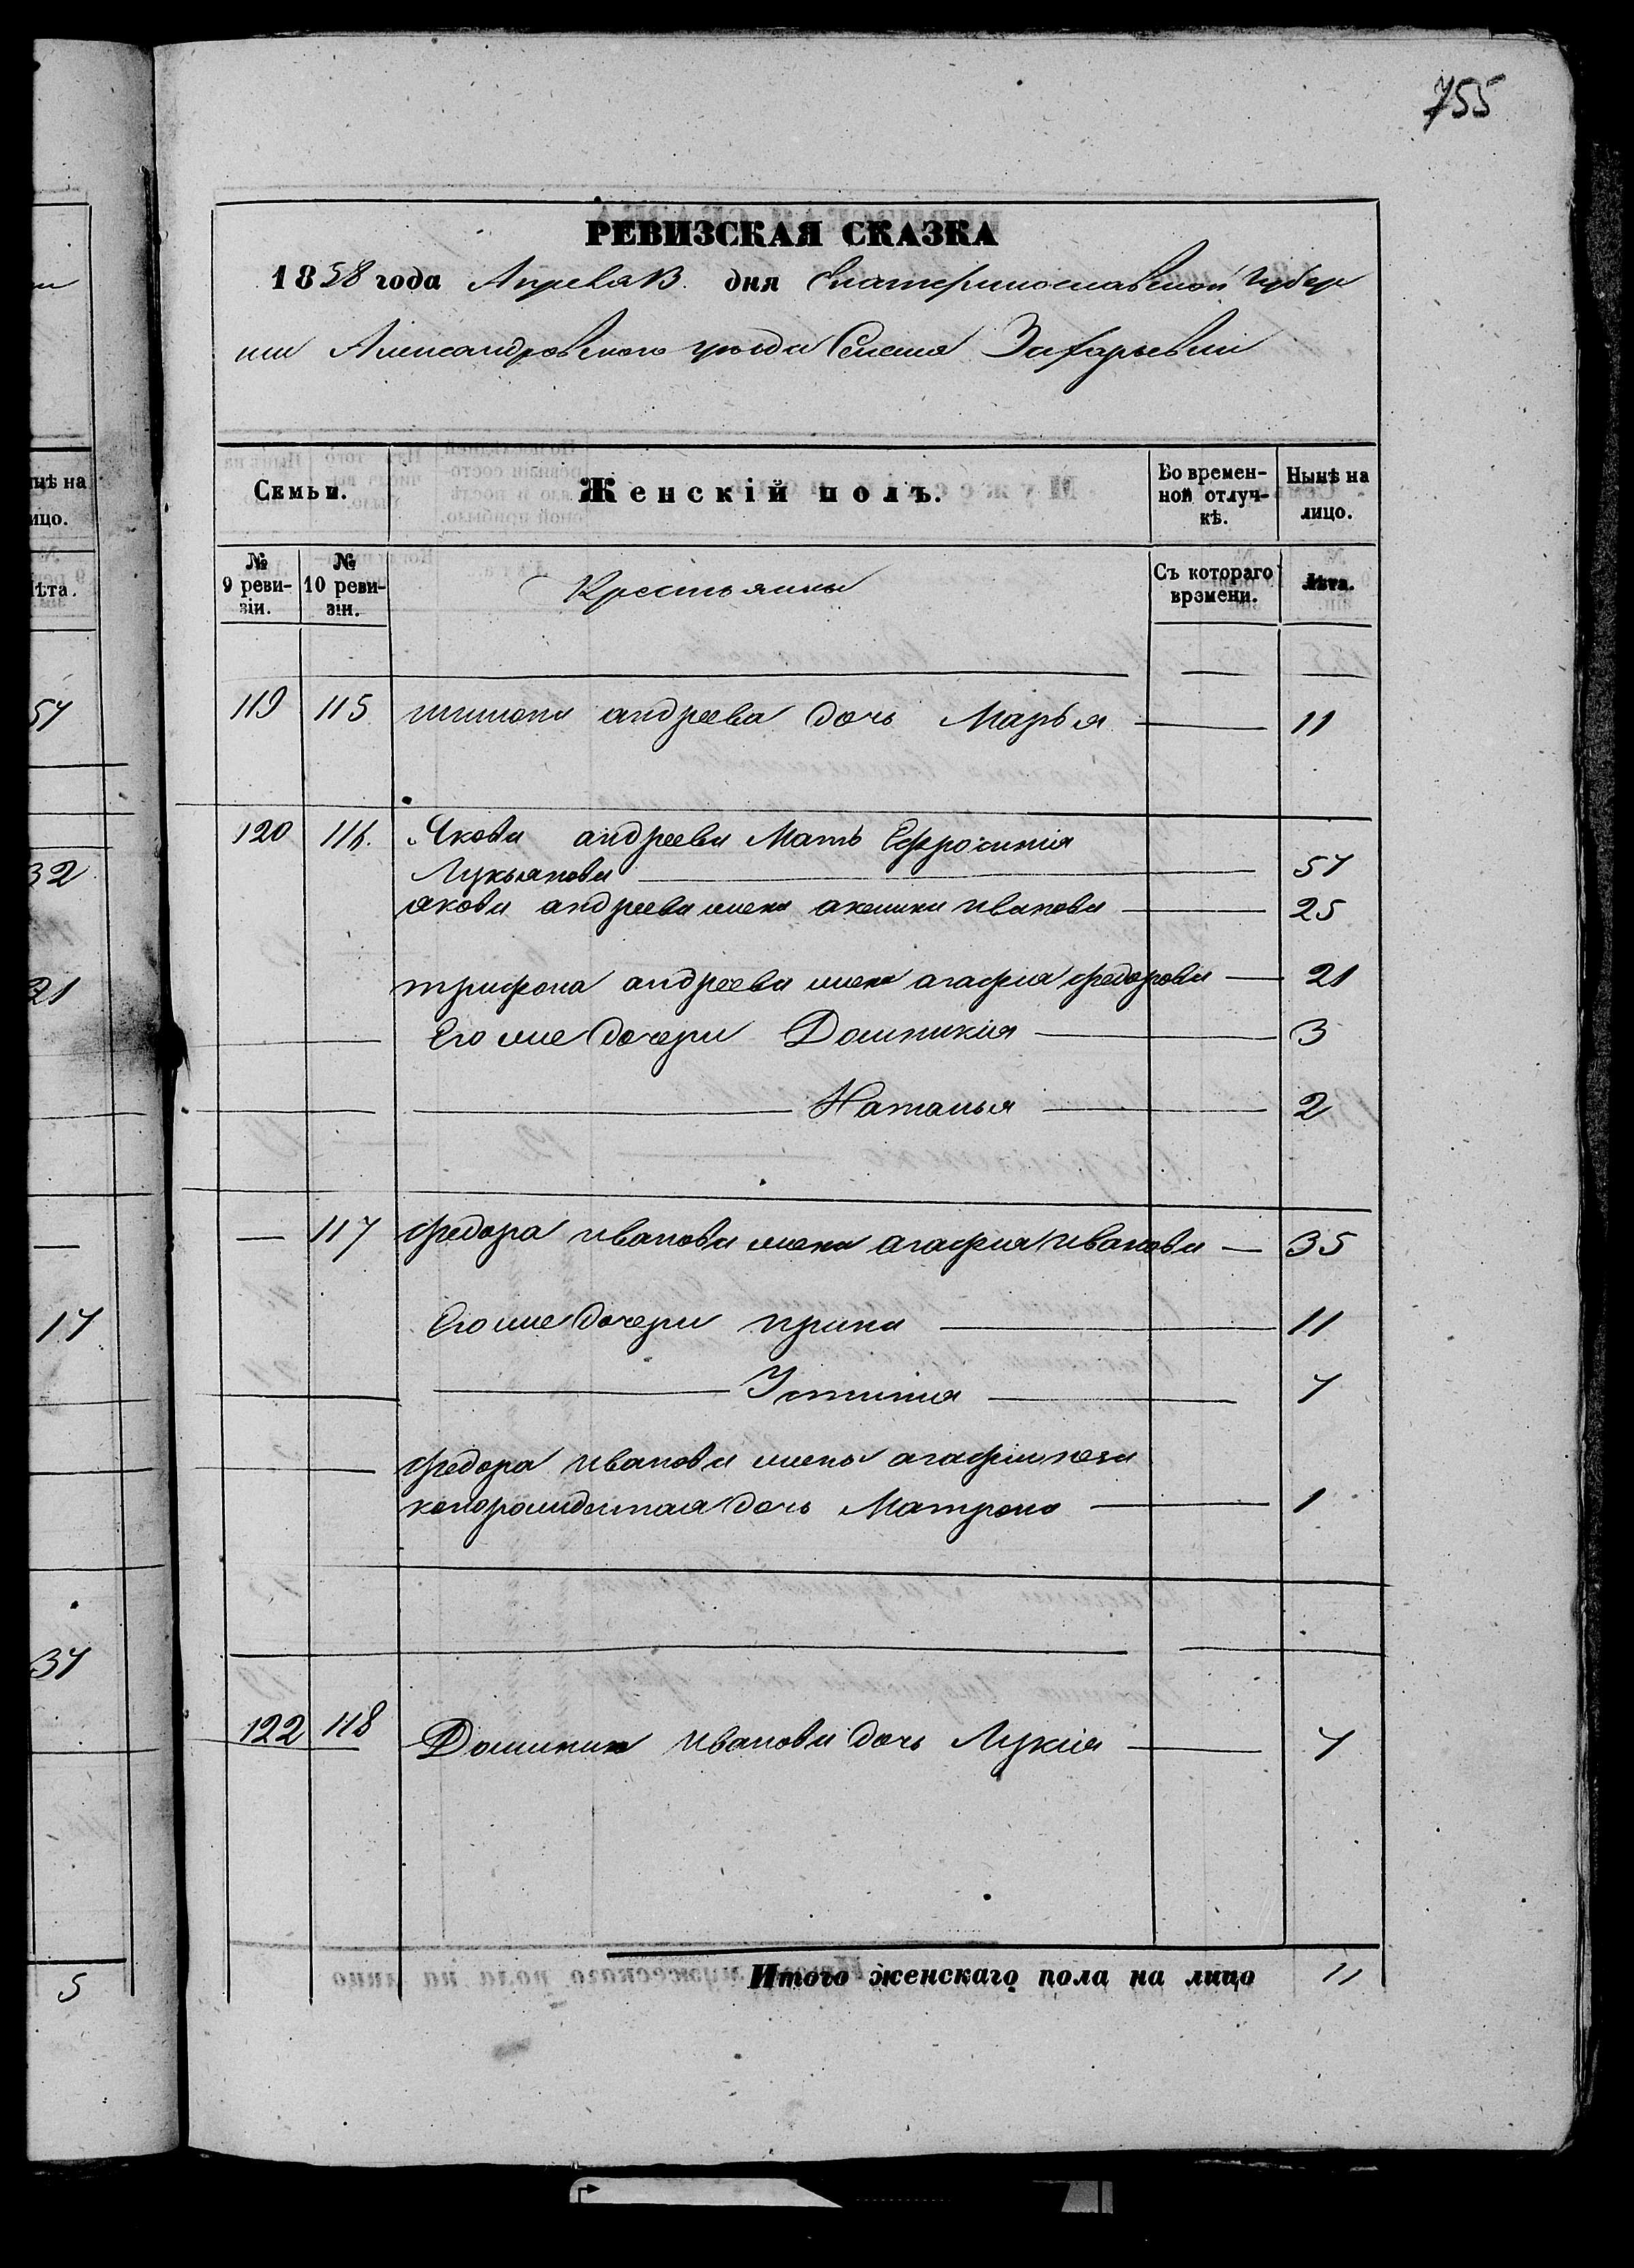 755
РЕВИЗСКАЯ СКАЗКА
1858 года Апреля дня Екатеринославской Губер
нии Александровского уезда Захарьевки
Семьи.
Женскій полъ.
Во времен-
ной отлуч-
кѣ.
Нынѣ на
лицо.
№
9 реви-
зіи.
№
10 реви-
зіи.
Крестьянки
Съ котораго
времени.
Лѣта.
119 115 андреева дочь Марья 11
120 116. Якова андреева Мать Ефросинія
Лукьянова 57
якова андреева жена акулина иванова 25
трифона андреева жена агафия федорова 21
Его же дочери Домникия 3
Наталья 2
117 федора иванова жена агафия иванова 35
Его же дочери ирина 11
Устиния 7
федора иванова жены агафии
дочь Матрона 1
122 118 иванова дочь Лукия 7
Итого женскаго пола на лицо 11
нѣ на
ицо.
ѣта.
57
32
21
17
37
5